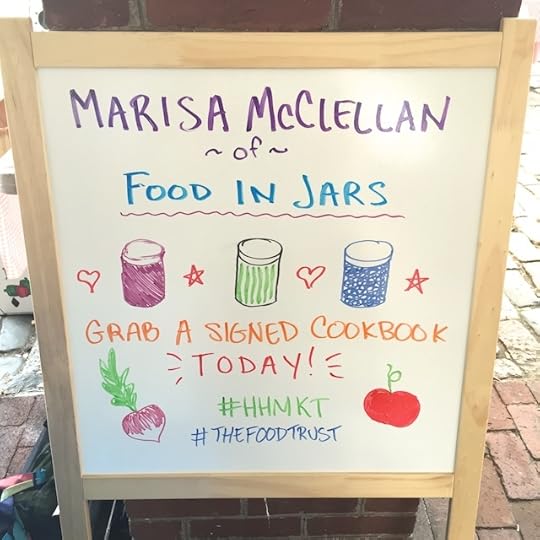 MARISA McCLELLAN
~ of ~
FOOD IN JARS
GRAB A SIGNED COOKBOOK
TODAY!
#HHMKT
#THEFOODTRUST